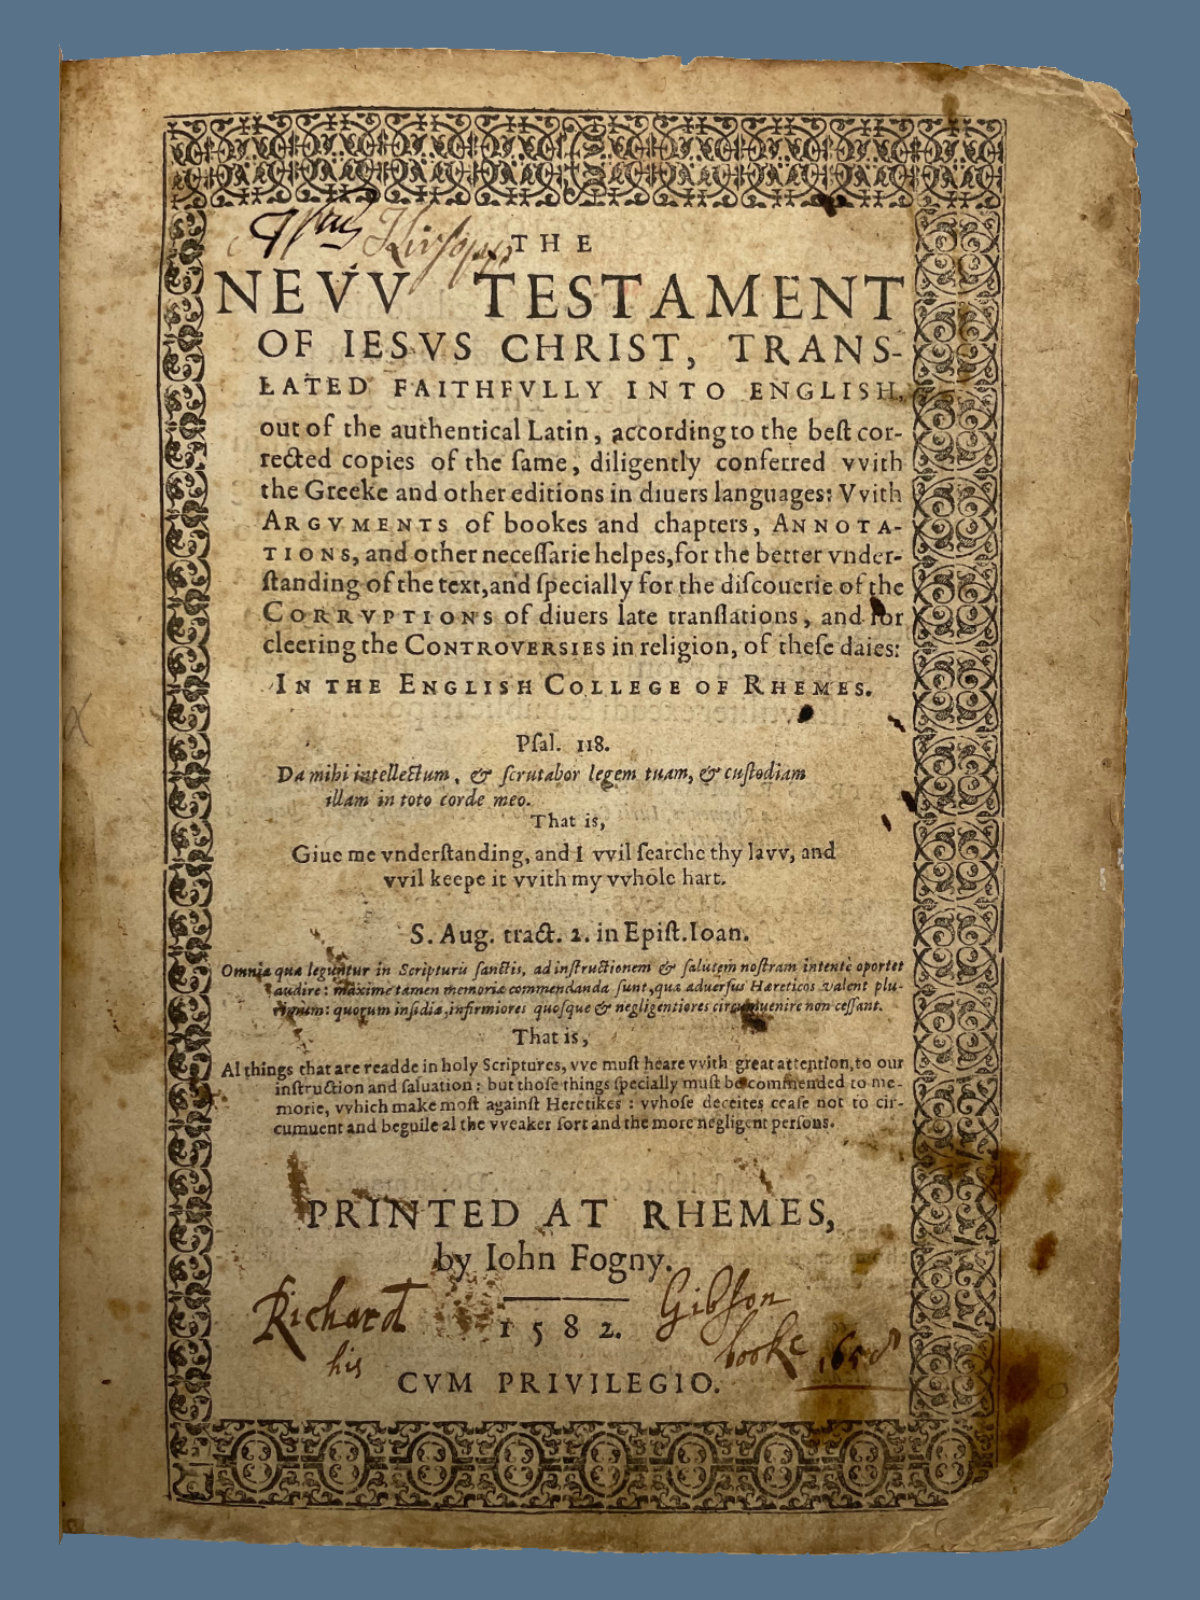 THE
NEVV TESTAMENT
OF IESVS CHRIST, TRANS-
LATED FAITHFVLLY INTO ENGLISH,
out of the authentical Latin, according to the beſt cor-
rected copies of the ſame, diligently conferred vvith
the Greeke and other editions in diuers languages: Vvith
ARGVMENTS of bookes and chapters, ANNOTA-
TIONS, and other neceſſarie helpes, for the better vnder-
ſtanding of the text, and ſpecially for the diſcouerie of the
CORRVPTIONS of diuers late tranſlations, and for
cleering the CONTROVERSIES in religion, of theſe daies:
IN THE ENGLISH COLLEGE OF RHEMES.
Pſal. 118.
Da mihi intellectum, & ſcrutabor legem tuam, & cuſtodiam
illam in toto corde meo.
That is,
Giue me vnderſtanding, and I vvil ſearche thy lavv, and
vvil keepe it vvith my vvhole hart.
S. Aug. tract. 2. in Epiſt. Ioan.
Omnia quæ leguntur in Scripturis ſanctis, ad inſtructionem & ſalutem noſtram intentè oportet
audire: maximè tamen memoriæ commendanda ſunt, quæ aduerſus Hæreticos valent plu-
rimùm: quorum inſidiæ, infirmiores quoſque & negligentiores circumuenire non ceſſant.
That is,
Al things that are readde in holy Scriptures, vve muſt heare vvith great attention, to our
inſtruction and ſaluation: but thoſe things ſpecially muſt be commended to me-
morie, vvhich make moſt againſt Heretikes: vvhoſe deceites ceaſe not to cir-
cumuent and beguile al the vveaker ſort and the more negligent perſons.
PRINTED AT RHEMES,
by Iohn Fogny.
Richard Gibſon
1582.
his booke 1658
CVM PRIVILEGIO.